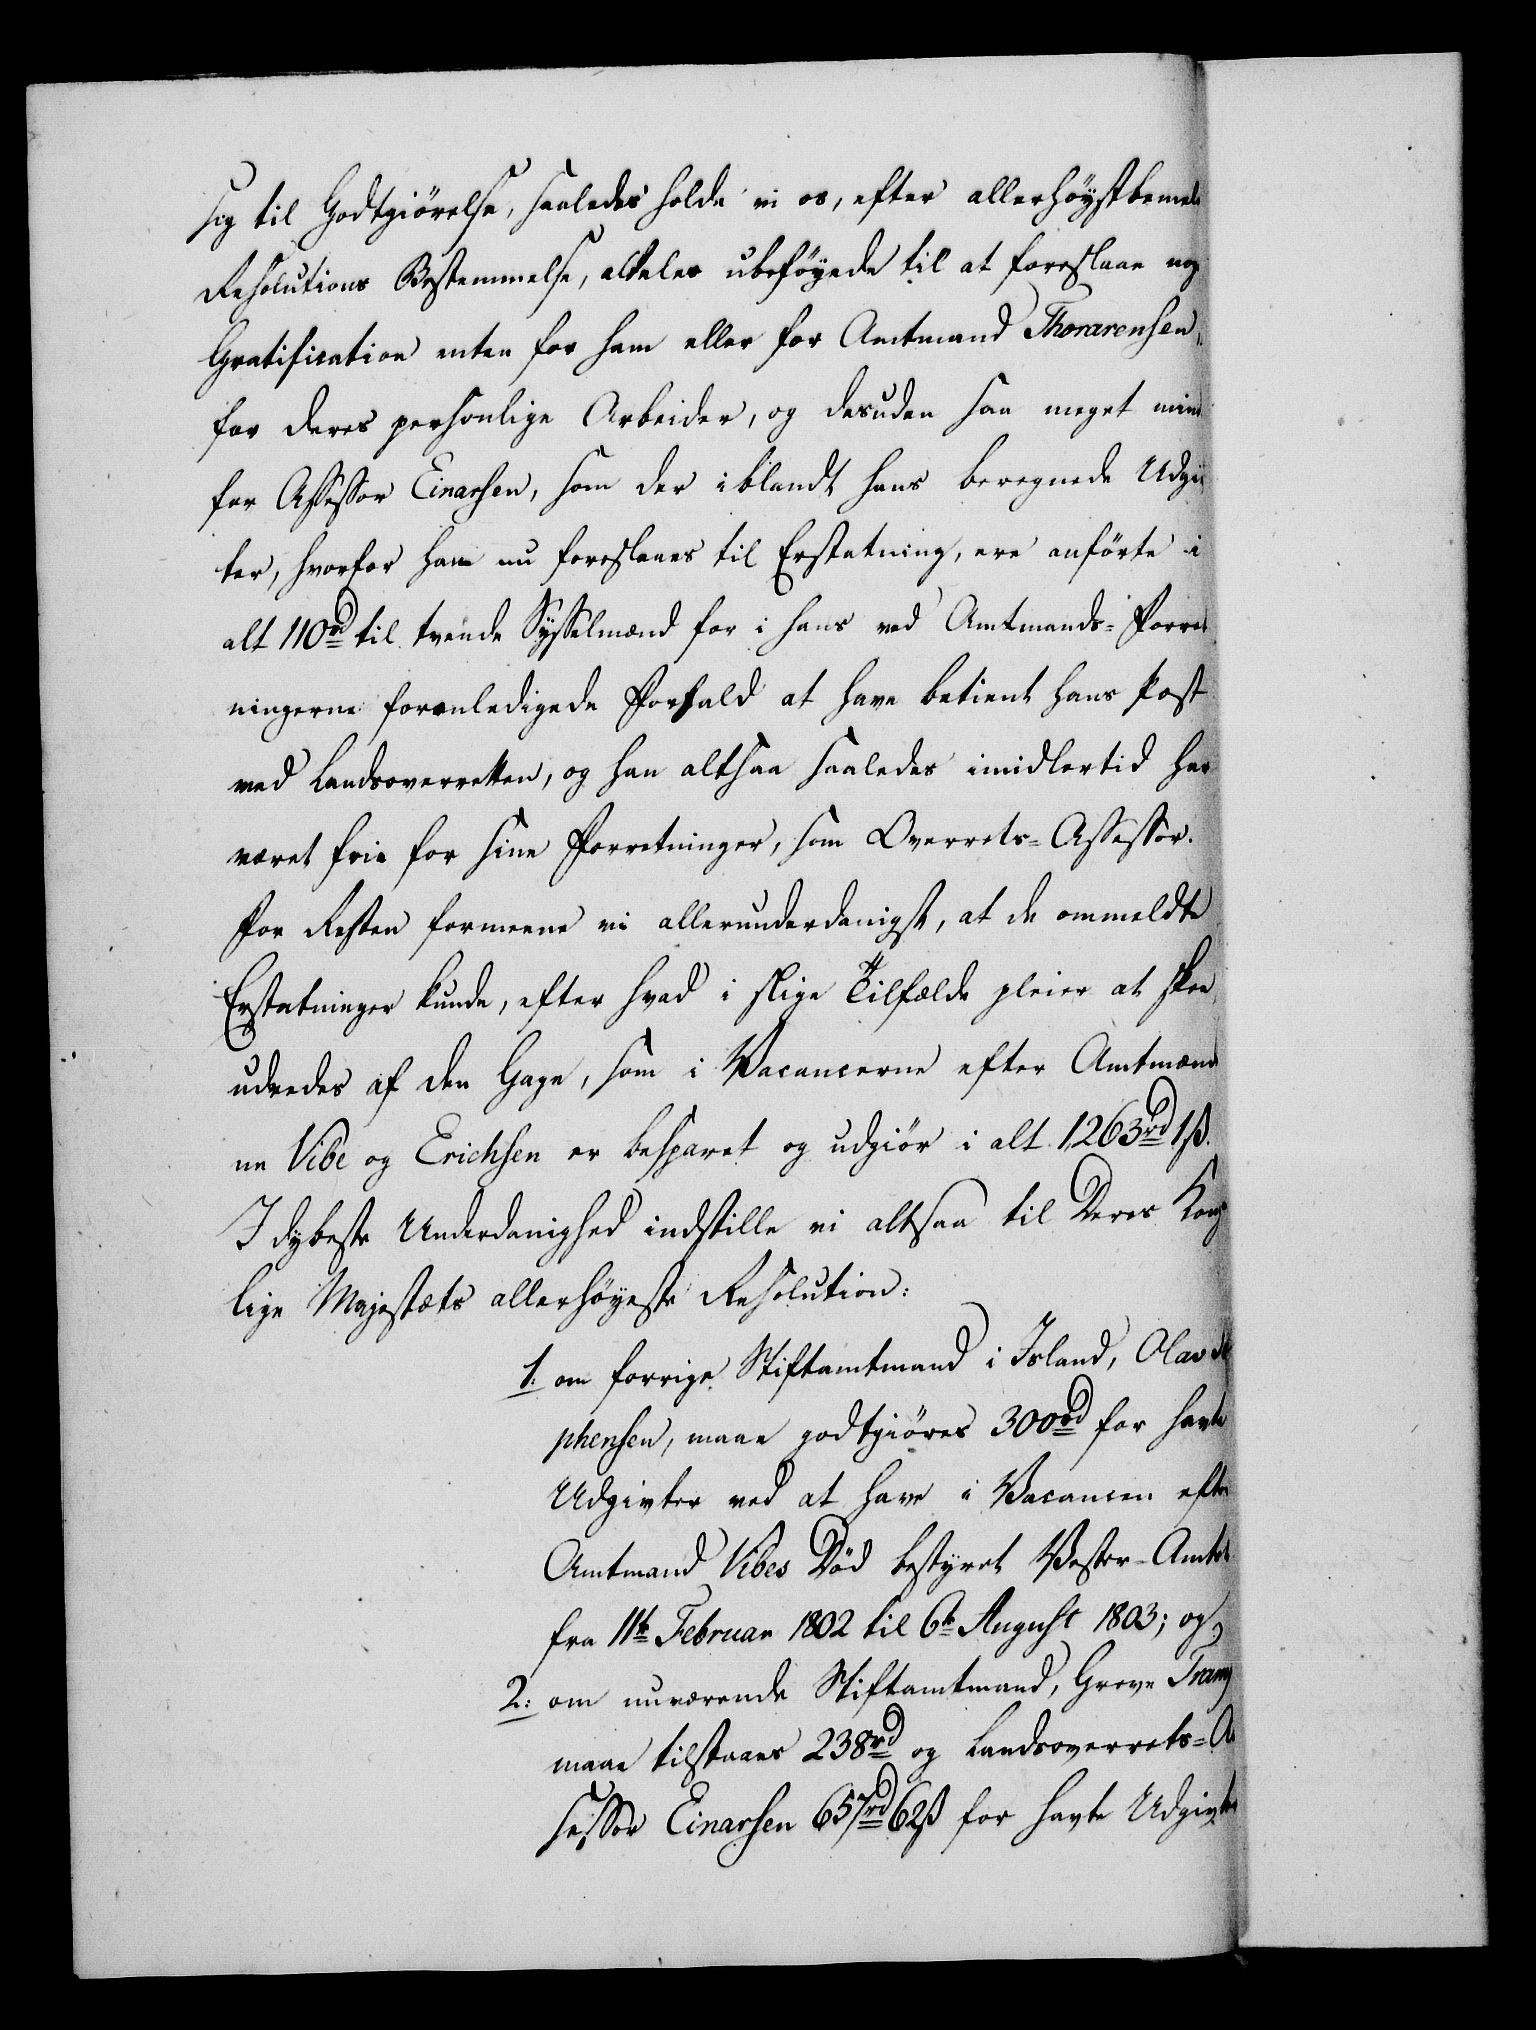 sig til Godtgiörelse, saaledes holde vi os, efter allerhöystbemeldte
Resolutions Bestemmelse, aldeles ubeföyede til at foreslaae nog
Gratification enten for ham eller for Amtmand Thorarensen,
for deres personlige Arbeider, og desuden saa meget mind
for Assessor Einarsen, som der iblandt hans beregnede Udgiv
ter, hvorfor han nu foreslaaes til Erstatning, ere anförte i
alt 110rd til tvende Sysselmænd for i hans ved Amtmands-Forret
ningerne foranledigede Forfald at have betient hans Post
ved Landsoverretten, og han altsaa saaledes imidlertid har
været frie for sine Forretninger, som Overrets-Assessor.
For Resten formeene vi allerunderdanigst, at de ommeldte
Erstatninger kunde, efter hvad i slige Tilfælde pleier at skee,
udredes af den Gage, som i Vacancerne efter Amtmænd
ne Vibe og Erichsen er besparet og udgiör i alt 1263rd 1ß.
I dybeste Underdanighed indstille vi altsaa til Deres Kong
lige Majestæts allerhöyeste Resolution:
1. om forrige Stiftamtmand i Island, Olav Ste
phensen, maae godtgiöres 300rd for havte
Udgivter ved at have i Vacancen efter
Amtmand Vibes Död bestyret Vester-Amtet
fra 11te Februar 1802 til 6te August 1803; og
2: om nuværende Stiftamtmand, Greve Tramp
maae tilstaaes 238rd og Landsoverrets-As
sessor Einarsen 657rd 62ß for havte Udgivter